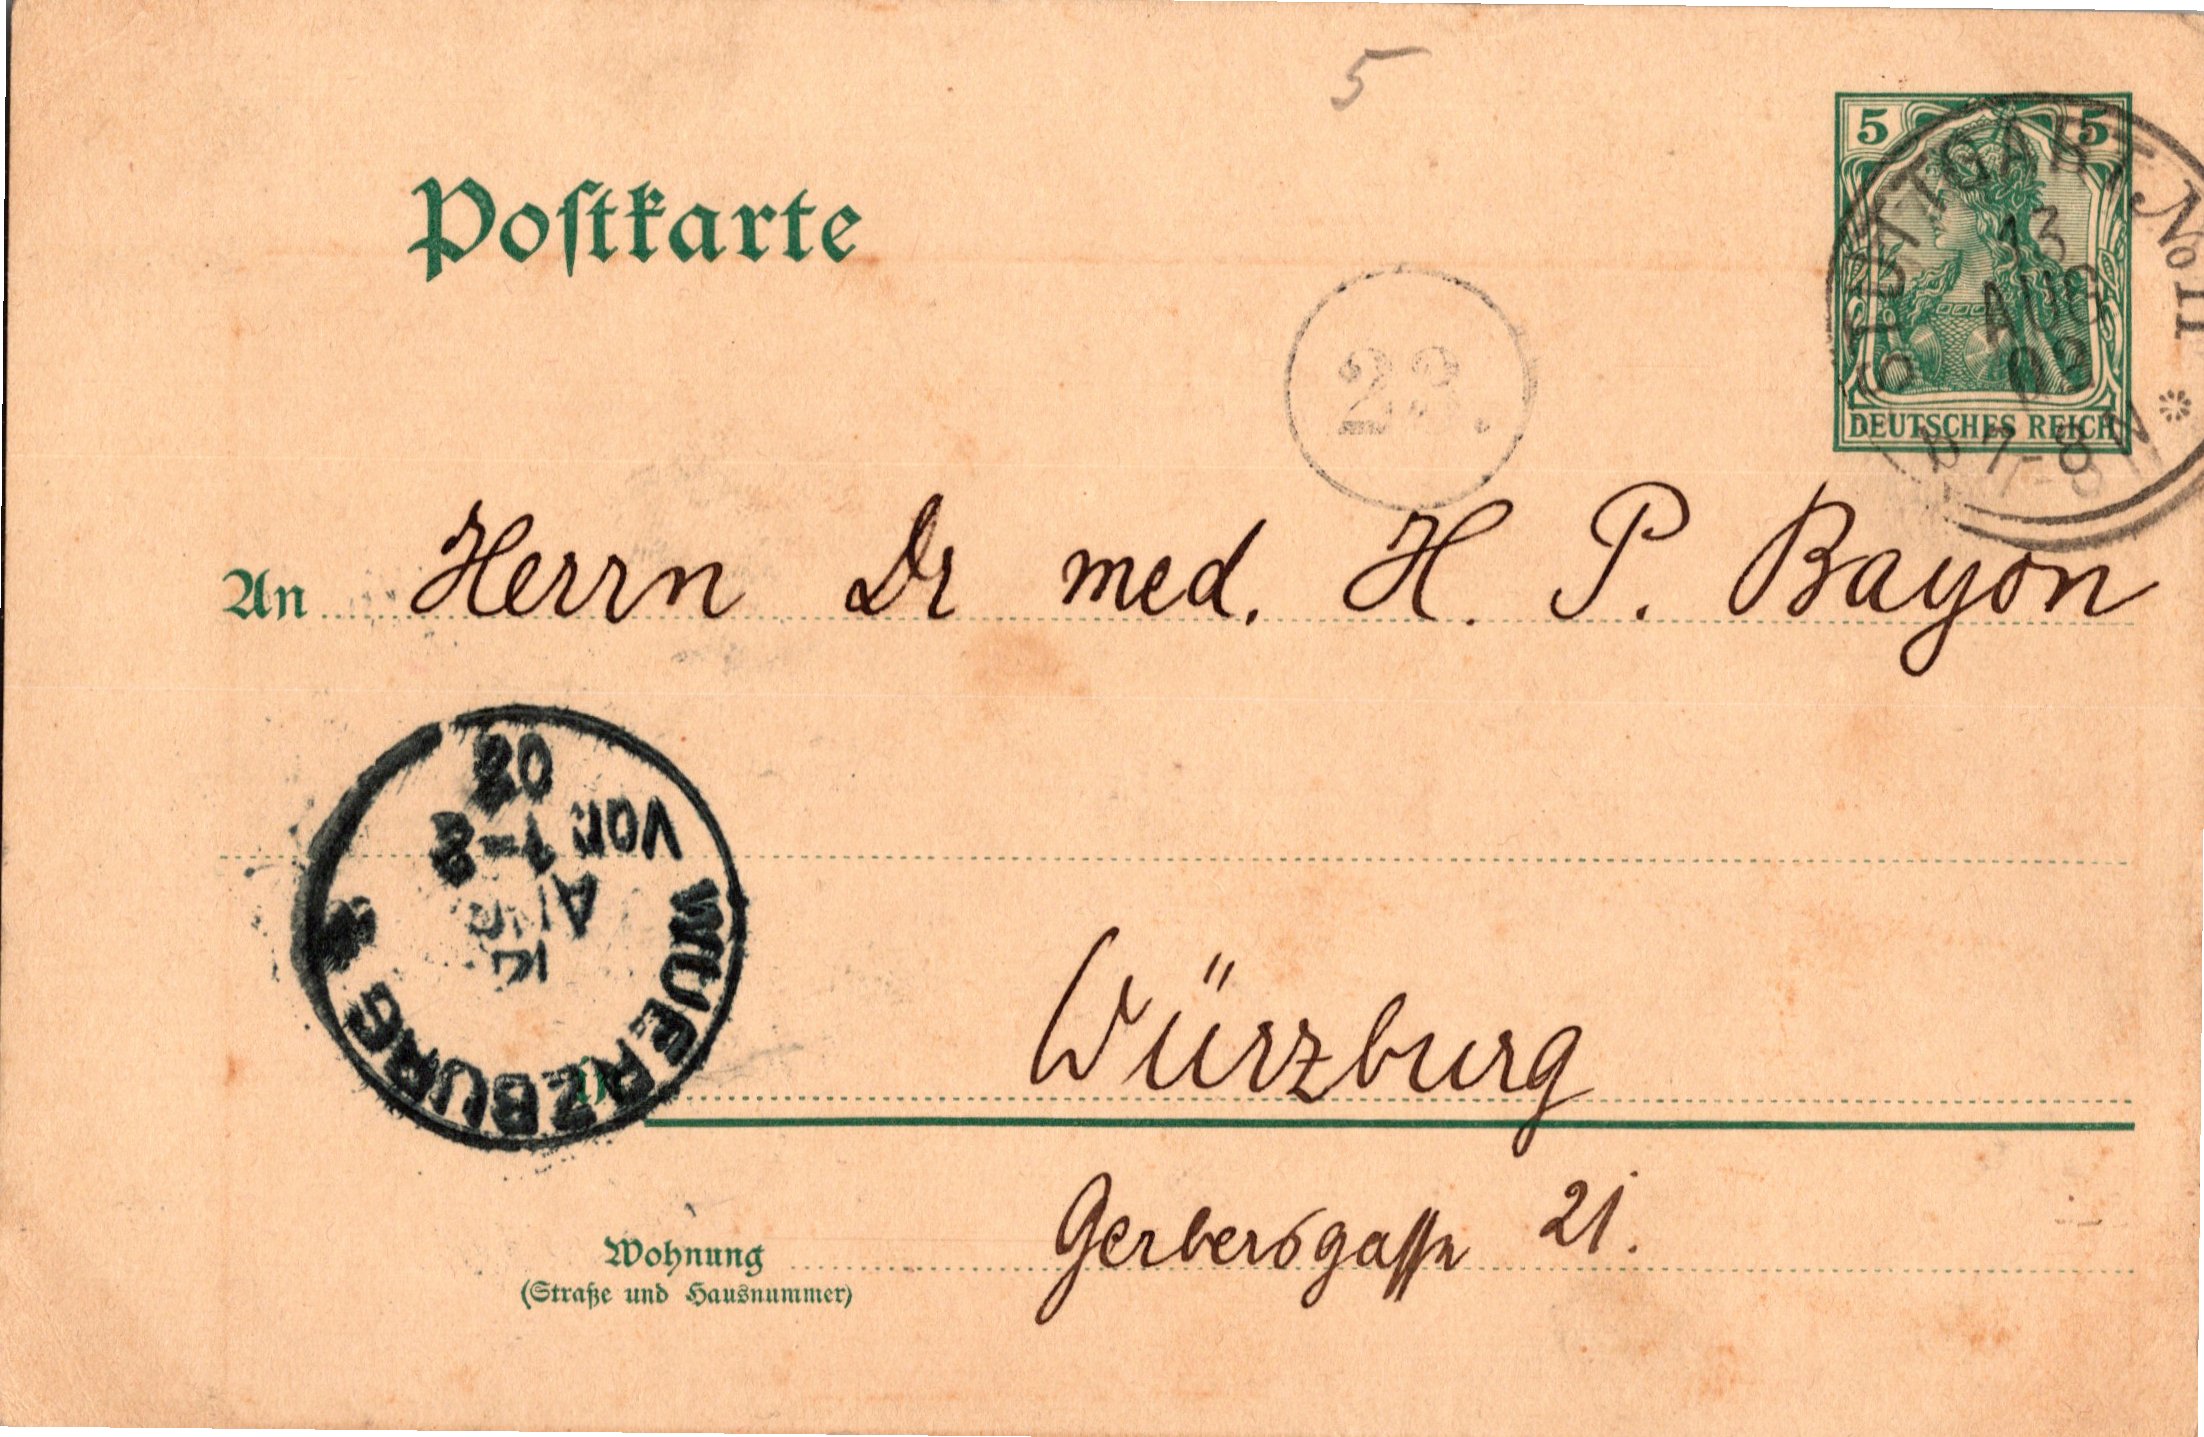 5
Postkarte
5 5
DEUTSCHES REICH
STUTTGART No 11
13
AUG
N 7-8 N
23.
An Herrn Dr med. H. P. Bayon
WUERZBURG
AUG
Vor. 7-8
Würzburg
Wohnung Gerbersgasse 21.
(Straße und Hausnummer)